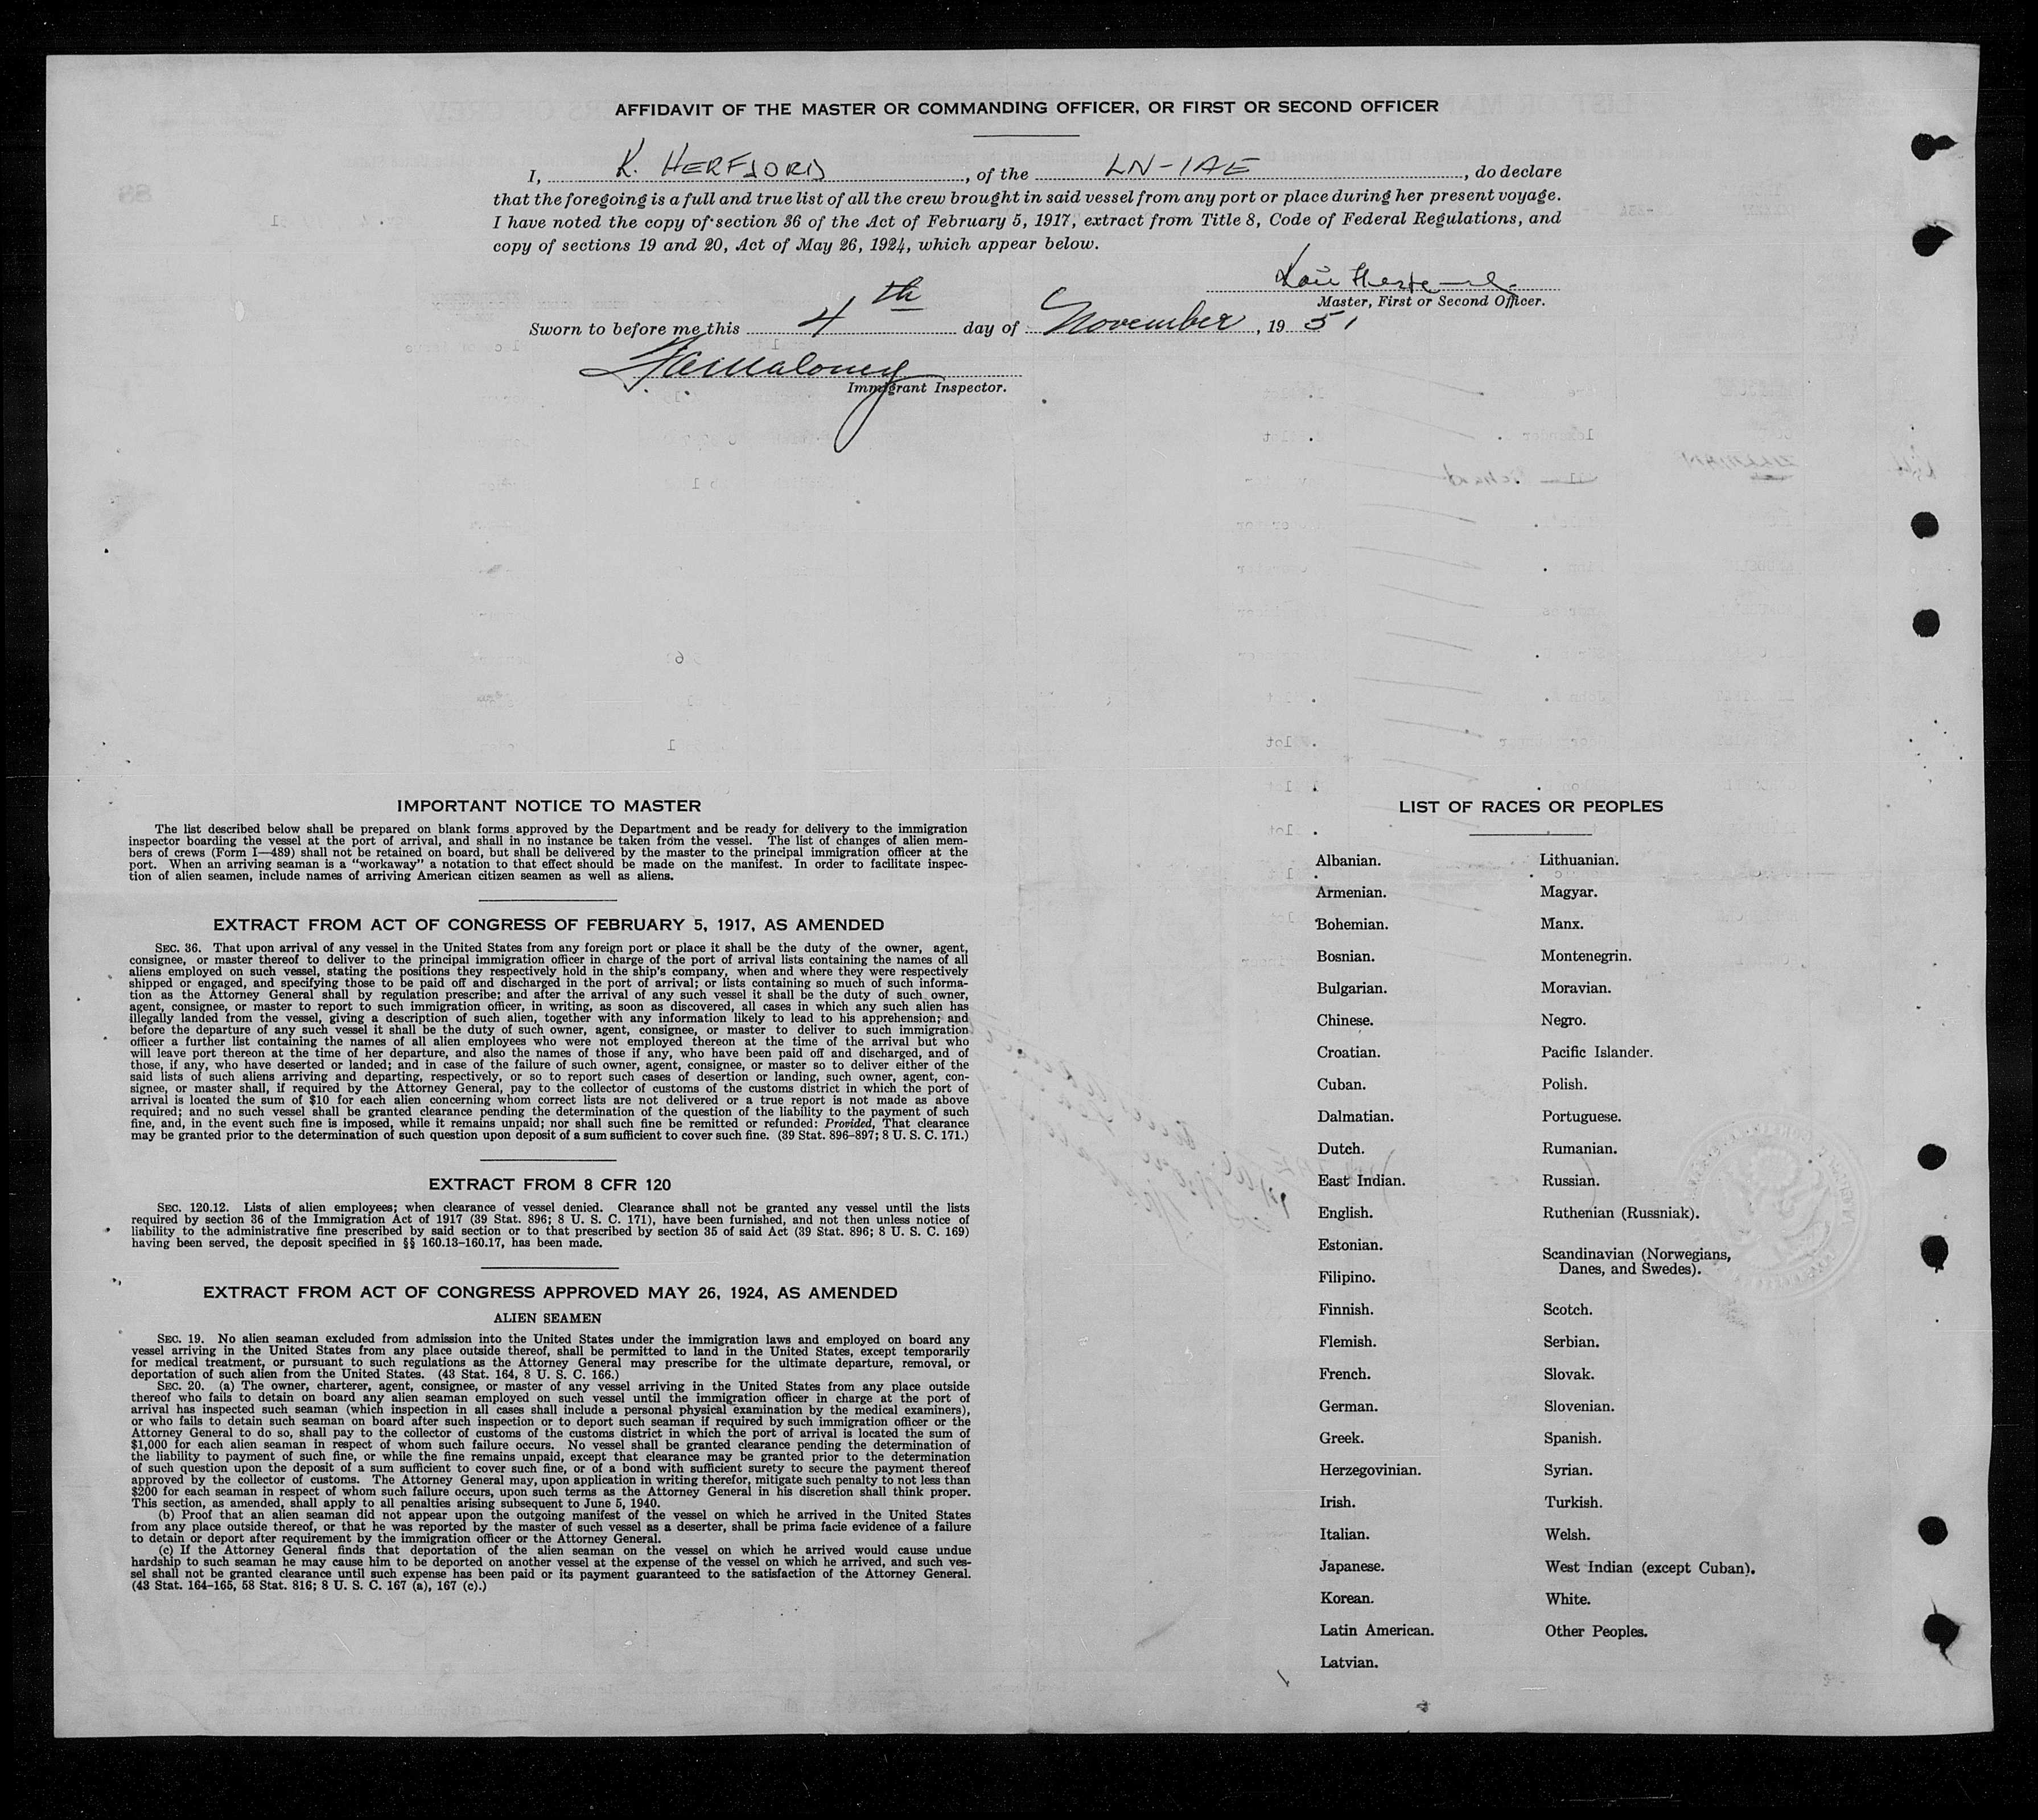 AFFIDAVIT OF THE MASTER OR COMMANDING OFFICER, OR FIRST OR SECOND OFFICER
I, K. HERFJORD, of the LN-IAE, do declare
that the foregoing is a full and true list of all the crew brought in said vessel from any port or place during her present voyage.
I have noted the copy of section 36 of the Act of February 5, 1917, extract from Title 8, Code of Federal Regulations, and
copy of sections 19 and 20, Act of May 26, 1924, which appear below.
Master, First or Second Officer.
Sworn to before me this 4th day of November, 1951
Maloney
Immigrant Inspector.
IMPORTANT NOTICE TO MASTER
The list described below shall be prepared on blank forms approved by the Department and be ready for delivery to the immigration
inspector boarding the vessel at the port of arrival, and shall in no instance be taken from the vessel. The list of changes of alien mem-
bers of crews (Form I—489) shall not be retained on board, but shall be delivered by the master to the principal immigration officer at the
port. When an arriving seaman is a "workaway" a notation to that effect should be made on the manifest. In order to facilitate inspec-
tion of alien seamen, include names of arriving American citizen seamen as well as aliens.
EXTRACT FROM ACT OF CONGRESS OF FEBRUARY 5, 1917, AS AMENDED
SEC. 36. That upon arrival of any vessel in the United States from any foreign port or place it shall be the duty of the owner, agent,
consignee, or master thereof to deliver to the principal immigration officer in charge of the port of arrival lists containing the names of all
aliens employed on such vessel, stating the positions they respectively hold in the ship's company, when and where they were respectively
shipped or engaged, and specifying those to be paid off and discharged in the port of arrival; or lists containing so much of such informa-
tion as the Attorney General shall by regulation prescribe; and after the arrival of any such vessel it shall be the duty of such owner,
agent, consignee, or master to report to such immigration officer, in writing, as soon as discovered, all cases in which any such alien has
illegally landed from the vessel, giving a description of such alien, together with any information likely to lead to his apprehension; and
before the departure of any such vessel it shall be the duty of such owner, agent, consignee, or master to deliver to such immigration
officer a further list containing the names of all alien employees who were not employed thereon at the time of the arrival but who
will leave port thereon at the time of her departure, and also the names of those if any, who have been paid off and discharged, and of
those, if any, who have deserted or landed; and in case of the failure of such owner, agent, consignee, or master so to deliver either of the
said lists of such aliens arriving and departing, respectively, or so to report such cases of desertion or landing, such owner, agent, con-
signee, or master shall, if required by the Attorney General, pay to the collector of customs of the customs district in which the port of
arrival is located the sum of $10 for each alien concerning whom correct lists are not delivered or a true report is not made as above
required; and no such vessel shall be granted clearance pending the determination of the question of the liability to the payment of such
fine, and, in the event such fine is imposed, while it remains unpaid; nor shall such fine be remitted or refunded: Provided, That clearance
may be granted prior to the determination of such question upon deposit of a sum sufficient to cover such fine. (39 Stat. 896–897; 8 U. S. C. 171.)
EXTRACT FROM 8 CFR 120
SEC. 120.12. Lists of alien employees; when clearance of vessel denied. Clearance shall not be granted any vessel until the lists
required by section 36 of the Immigration Act of 1917 (39 Stat. 896; 8 U. S. C. 171), have been furnished, and not then unless notice of
liability to the administrative fine prescribed by said section or to that prescribed by section 35 of said Act (39 Stat. 896; 8 U. S. C. 169)
having been served, the deposit specified in §§ 160.13–160.17, has been made.
EXTRACT FROM ACT OF CONGRESS APPROVED MAY 26, 1924, AS AMENDED
ALIEN SEAMEN
SEC. 19. No alien seaman excluded from admission into the United States under the immigration laws and employed on board any
vessel arriving in the United States from any place outside thereof, shall be permitted to land in the United States, except temporarily
for medical treatment, or pursuant to such regulations as the Attorney General may prescribe for the ultimate departure, removal, or
deportation of such alien from the United States. (43 Stat. 164, 8 U. S. C. 166.)
SEC. 20. (a) The owner, charterer, agent, consignee, or master of any vessel arriving in the United States from any place outside
thereof who fails to detain on board any alien seaman employed on such vessel until the immigration officer in charge at the port of
arrival has inspected such seaman (which inspection in all cases shall include a personal physical examination by the medical examiners),
or who fails to detain such seaman on board after such inspection or to deport such seaman if required by such immigration officer or the
Attorney General to do so, shall pay to the collector of customs of the customs district in which the port of arrival is located the sum of
$1,000 for each alien seaman in respect of whom such failure occurs. No vessel shall be granted clearance pending the determination of
the liability to payment of such fine, or while the fine remains unpaid, except that clearance may be granted prior to the determination
of such question upon the deposit of a sum sufficient to cover such fine, or of a bond with sufficient surety to secure the payment thereof
approved by the collector of customs. The Attorney General may, upon application in writing therefor, mitigate such penalty to not less than
$200 for each seaman in respect of whom such failure occurs, upon such terms as the Attorney General in his discretion shall think proper.
This section, as amended, shall apply to all penalties arising subsequent to June 5, 1940.
(b) Proof that an alien seaman did not appear upon the outgoing manifest of the vessel on which he arrived in the United States
from any place outside thereof, or that he was reported by the master of such vessel as a deserter, shall be prima facie evidence of a failure
to detain or deport after requirement by the immigration officer or the Attorney General.
(c) If the Attorney General finds that deportation of the alien seaman on the vessel on which he arrived would cause undue
hardship to such seaman he may cause him to be deported on another vessel at the expense of the vessel on which he arrived, and such ves-
sel shall not be granted clearance until such expense has been paid or its payment guaranteed to the satisfaction of the Attorney General.
(43 Stat. 164–165, 58 Stat. 816; 8 U. S. C. 167 (a), 167 (c).)
LIST OF RACES OR PEOPLES
Albanian.
Armenian.
Bohemian.
Bosnian.
Bulgarian.
Chinese.
Croatian.
Cuban.
Dalmatian.
Dutch.
East Indian.
English.
Estonian.
Filipino.
Finnish.
Flemish.
French.
German.
Greek.
Herzegovinian.
Irish.
Italian.
Japanese.
Korean.
Latin American.
Latvian.
Lithuanian.
Magyar.
Manx.
Montenegrin.
Moravian.
Negro.
Pacific Islander.
Polish.
Portuguese.
Rumanian.
Russian.
Ruthenian (Russniak).
Scandinavian (Norwegians,
Danes, and Swedes).
Scotch.
Serbian.
Slovak.
Slovenian.
Spanish.
Syrian.
Turkish.
Welsh.
West Indian (except Cuban).
White.
Other Peoples.